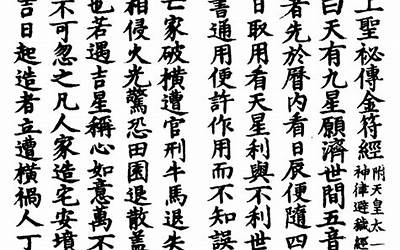 上聖祕傳金符經附天皇太一
神律避穢經
曰天有九星願濟世間五音
者先於曆内看日辰便隨四
日取用看天星利與不利世
書通用便許作用而不知誤
相侵火光驚恐田園退散蓋
亡家破橫遭官刑牛馬退失
也若遇吉星稱心如意萬不
不可忽之凡人家造宅安墳
吉日起造者立遭橫禍人丁